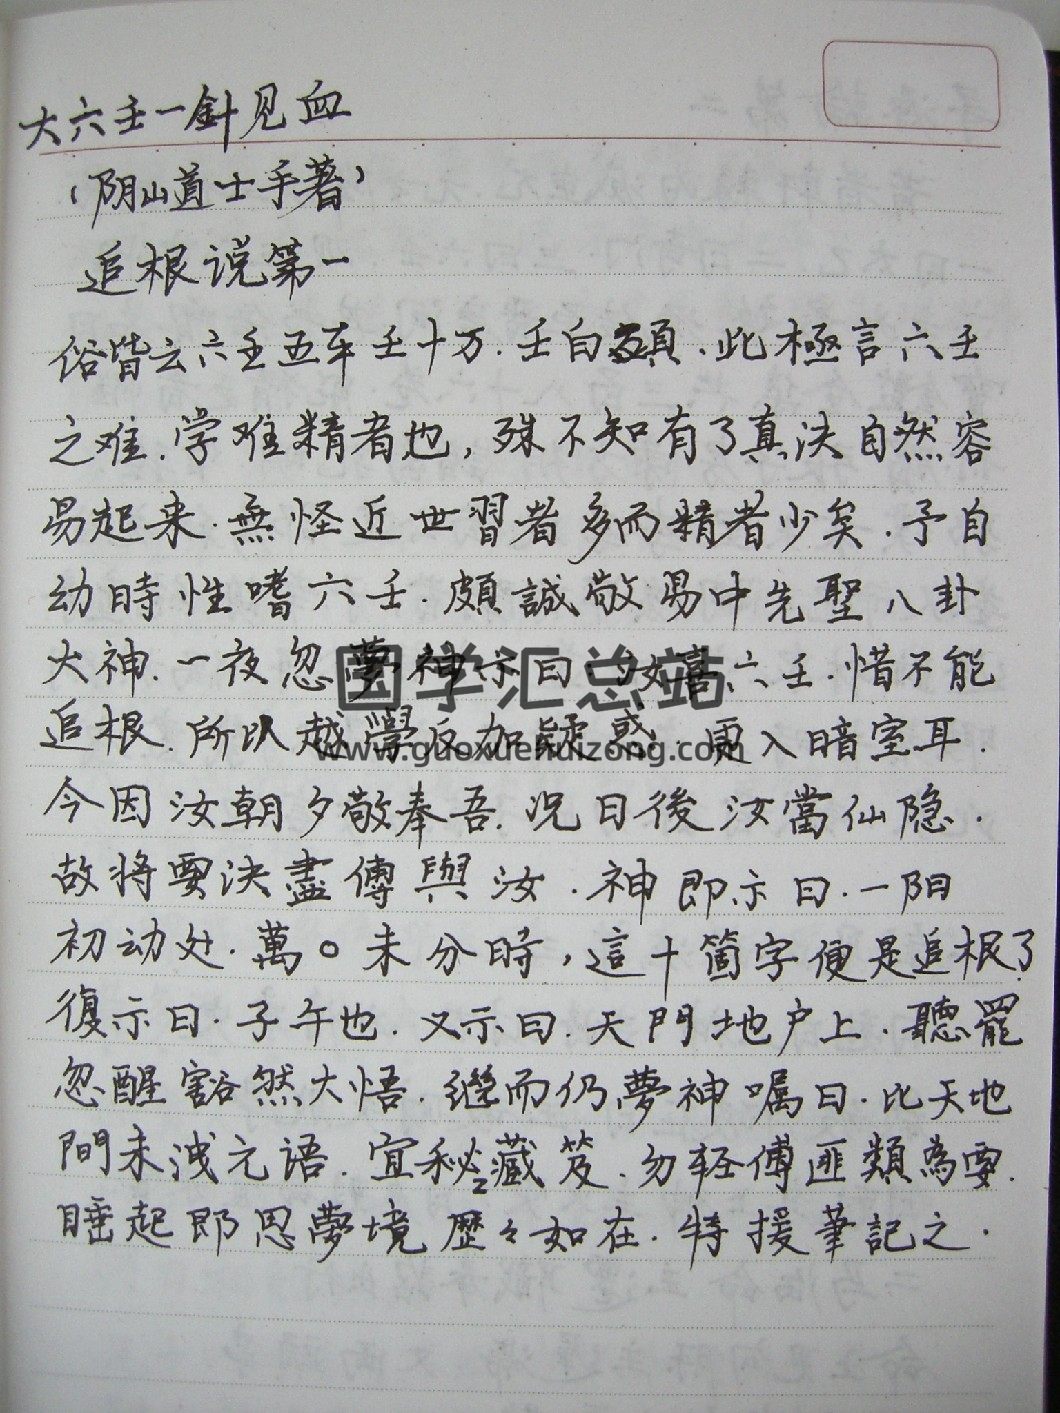 大六壬一針见血
（阴山道士手著）
追根说第一
俗皆云六壬五年壬十万．壬白頭．此極言六壬
之难．学难精者也，殊不知有了真决自然容
易起来．無怪近世習者多而精者少矣．予自
幼時性嗜六壬．頗誠敬易中先聖八卦
大神．一夜忽夢神示曰．汝喜六壬．惜不能
追根．所以越學反加疑惑．更入暗室耳．
今因汝朝夕敬奉吾．况日後汝當仙隐．
故将要決盡傳與汝．神即示曰．一阳
初动处．萬○未分時，這十箇字便是追根了
復示曰．子午也．又示曰．天門地户上．聽罷
忽醒豁然大悟．继而仍夢神嘱曰．此天地
間未洩元语．宜秘之藏笈．勿轻傳匪類為要．
睡起即思夢境歷々如在．特援筆記之．
国学汇总站
www.guoxuehuizong.com